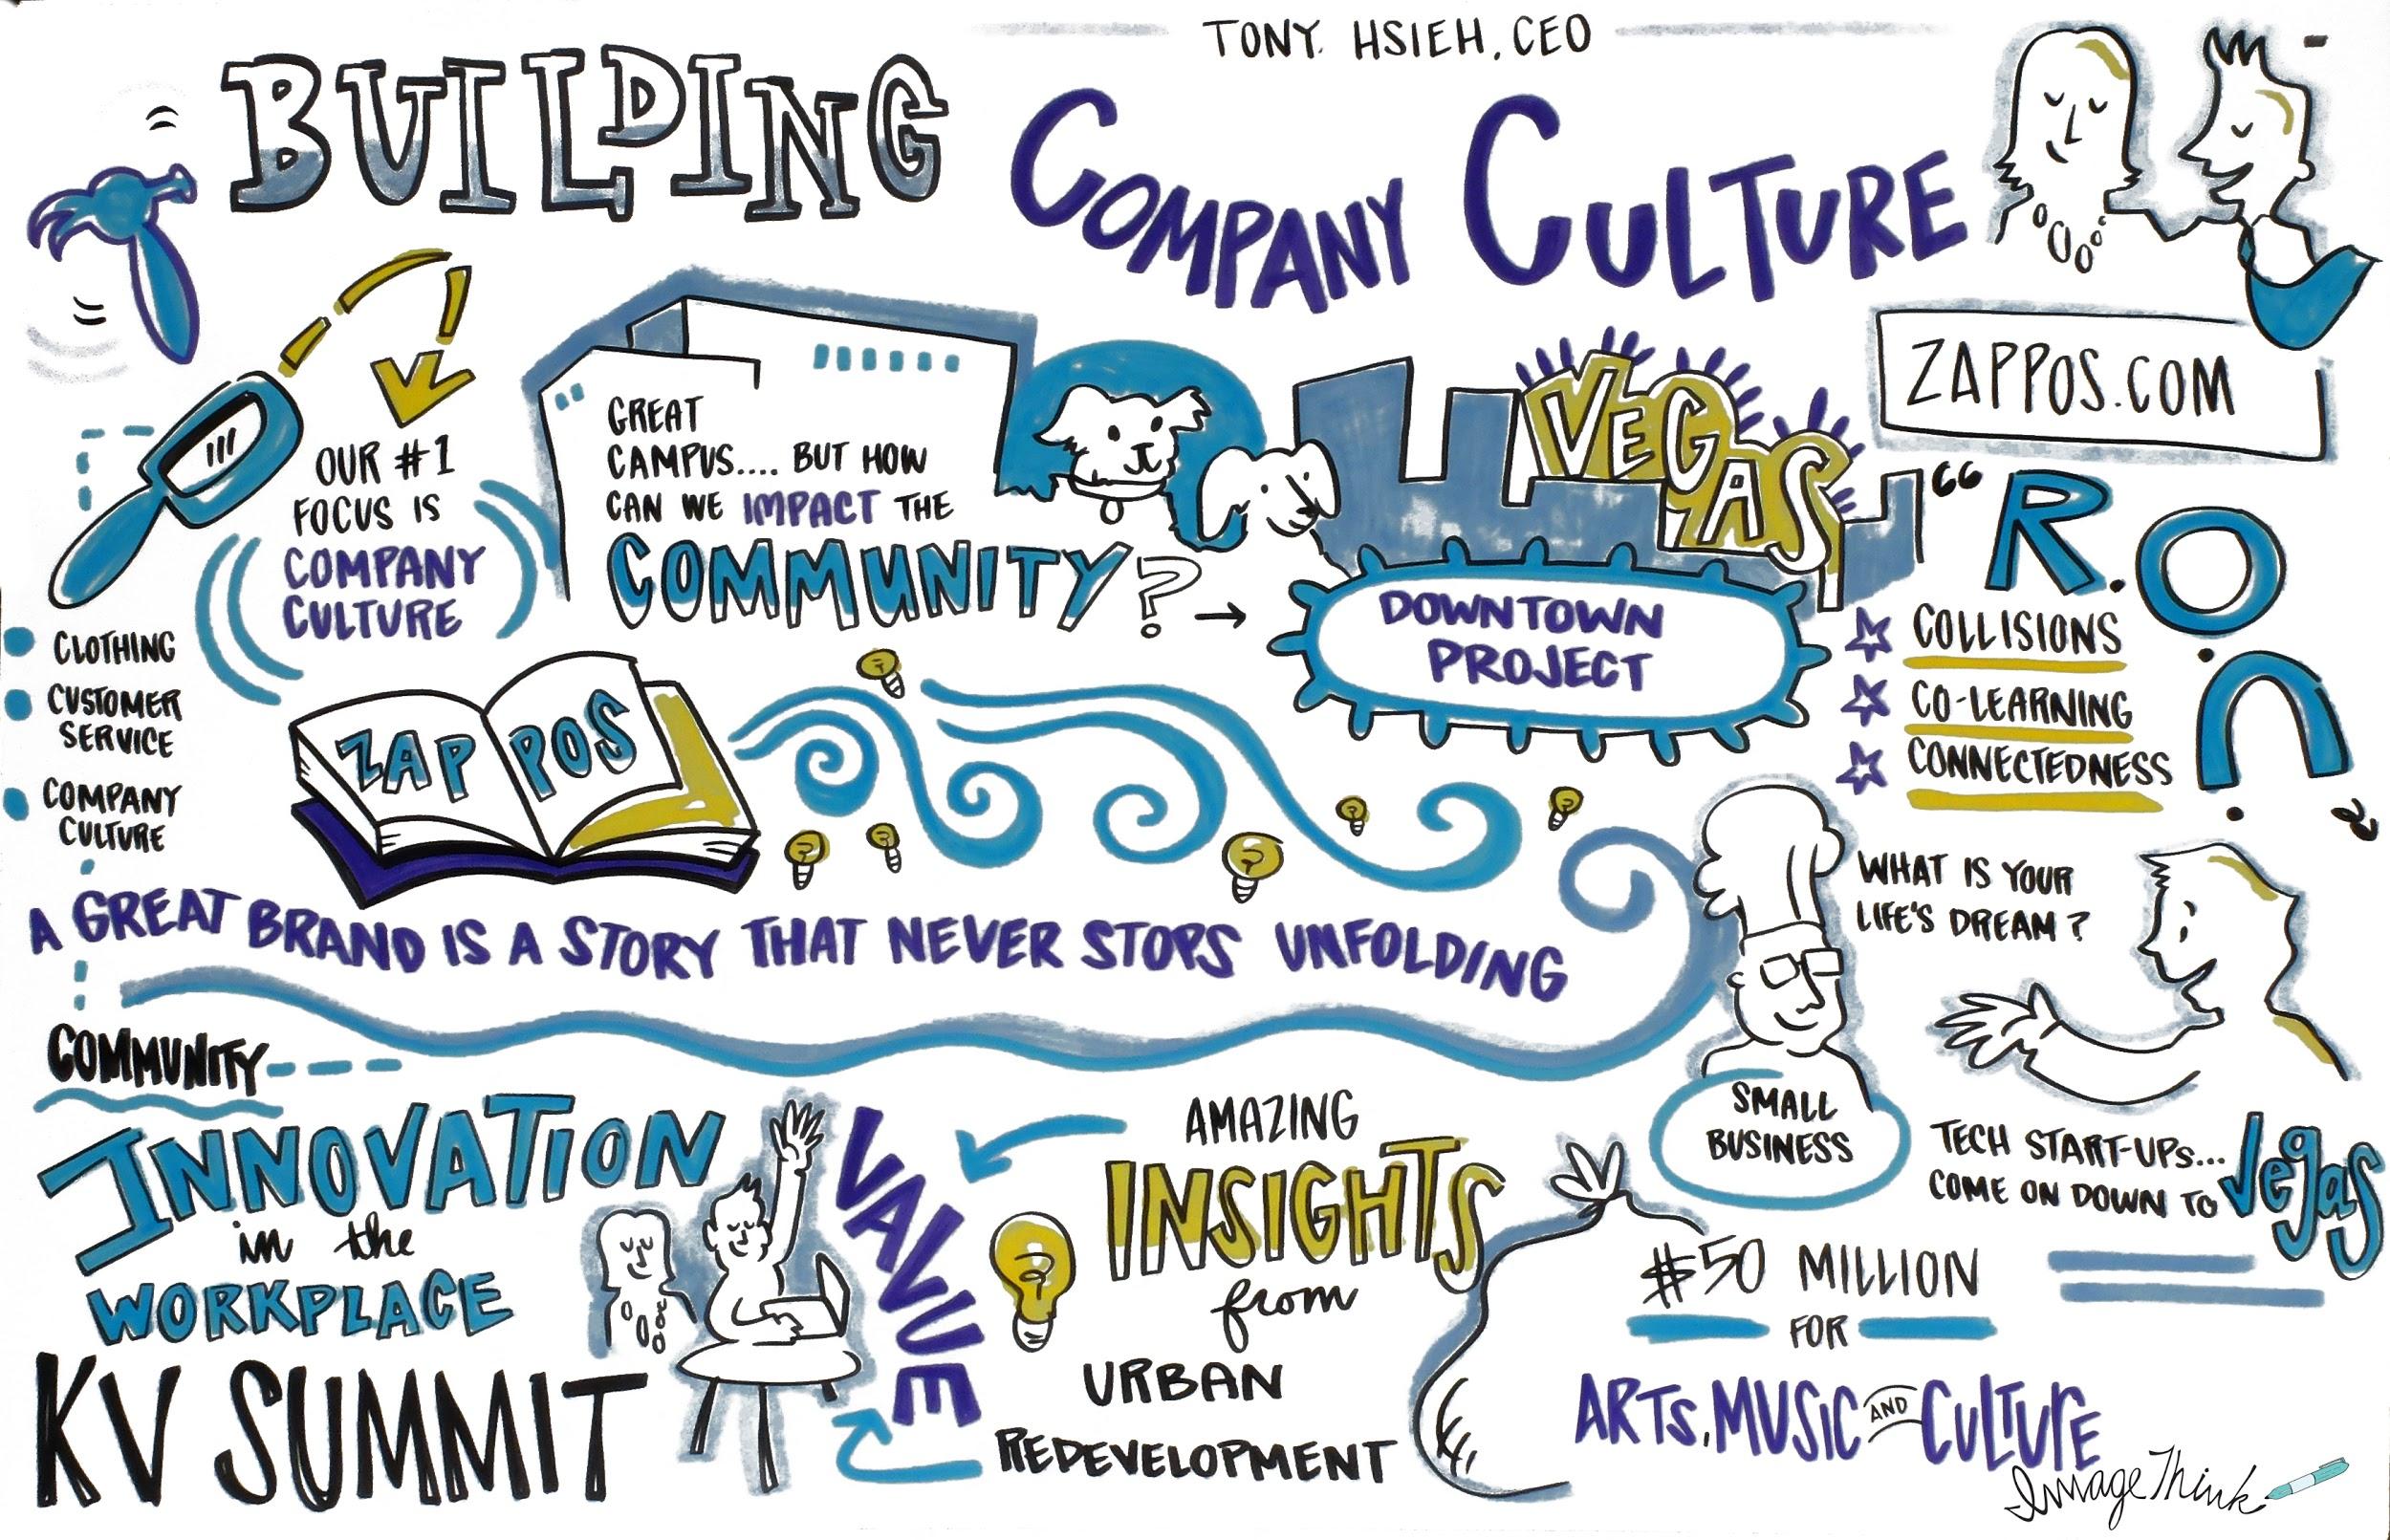 TONY. HSIEH, CEO
BUILDING
COMPANY CULTURE
ZAPPOS.COM
OUR #1
FOCUS IS
COMPANY
CULTURE
GREAT
CAMPUS.... BUT HOW
CAN WE IMPACT THE
COMMUNITY?
VEGAS
DOWNTOWN
PROJECT
"R.O.C."
COLLISIONS
CO-LEARNING
CONNECTEDNESS
CLOTHING
CUSTOMER
SERVICE
COMPANY
CULTURE
ZAPPOS
A GREAT BRAND IS A STORY THAT NEVER STOPS UNFOLDING
WHAT IS YOUR
LIFE'S DREAM?
SMALL
BUSINESS
TECH START-UPS...
COME ON DOWN TO Vegas
COMMUNITY
INNOVATION
in the
WORKPLACE
KV SUMMIT
VALUE
AMAZING
INSIGHTS
from
URBAN
REDEVELOPMENT
$50 MILLION
FOR
ARTS, MUSIC AND CULTURE
ImageThink